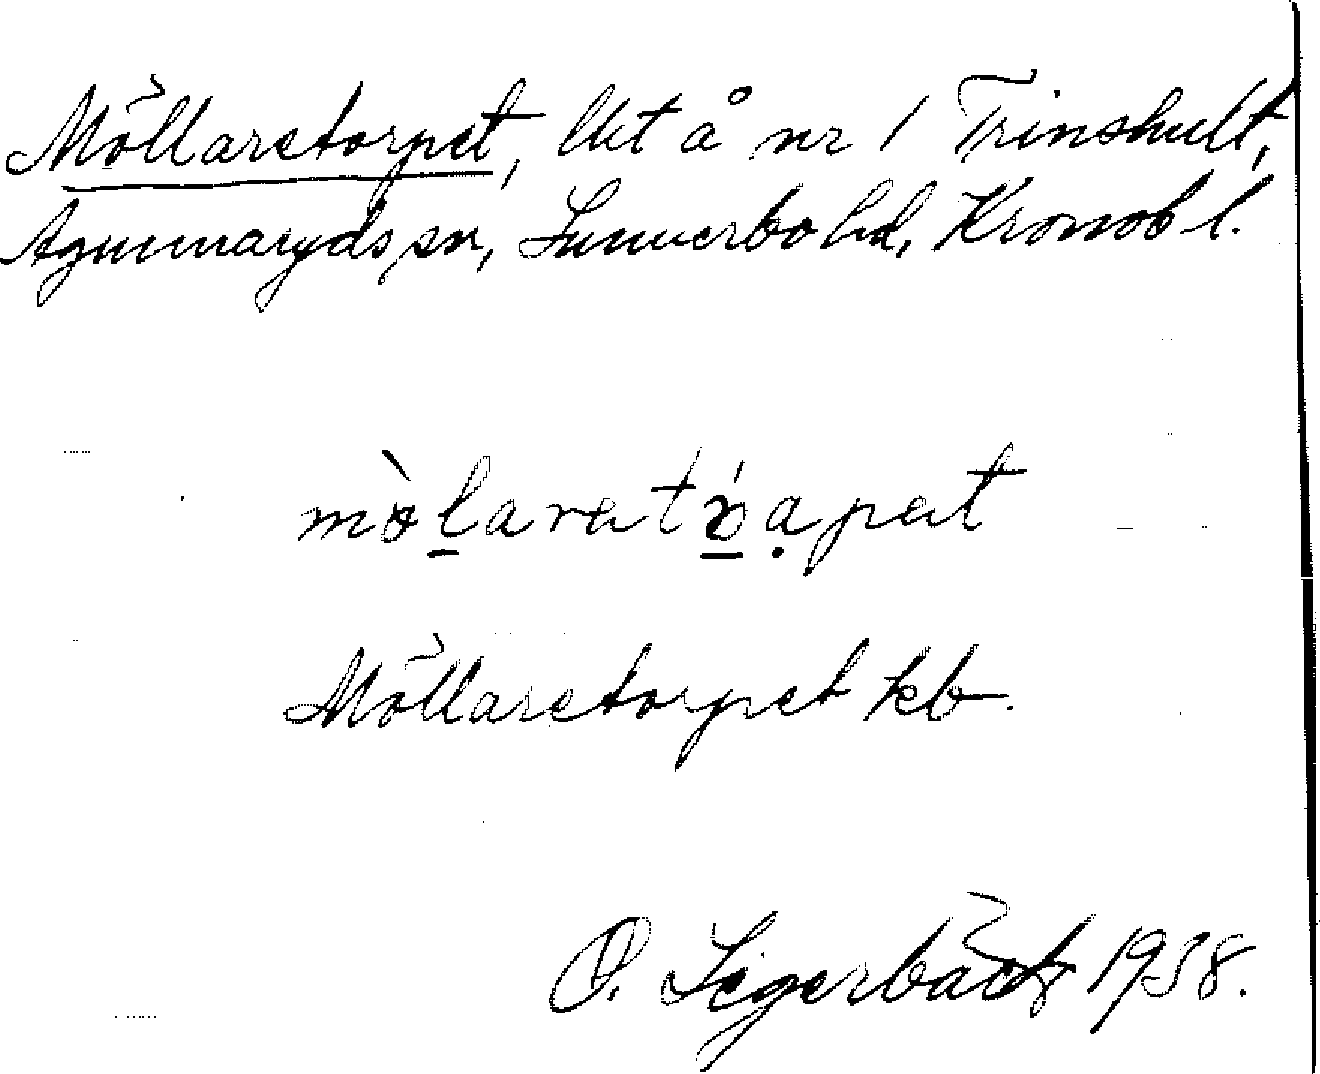 Möllaretorpet, lht å nr 1 Trinshult,
Agunnaryds sn, Sunnerbo hd, Kronob l.
Möllaretorpet kb.
O. Segerbäck 1938.